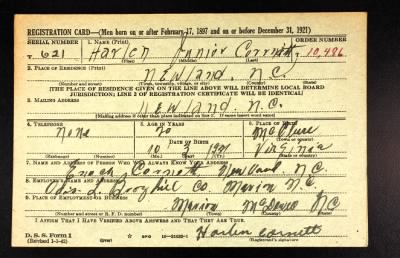 REGISTRATION CARD—(Men born on or after February 17, 1897 and on or before December 31, 1921)
SERIAL NUMBER 1. NAME (Print) ORDER NUMBER
T 621 Harlen Junior Cornett 10,486
(First) (Middle) (Last)
2. PLACE OF RESIDENCE (Print)
NEWland, N.C.
(Number and street) (Town, township, village, or city) (County) (State)
[THE PLACE OF RESIDENCE GIVEN ON THE LINE ABOVE WILL DETERMINE LOCAL BOARD
JURISDICTION; LINE 2 OF REGISTRATION CERTIFICATE WILL BE IDENTICAL]
3. MAILING ADDRESS
NEWland N.C.
[Mailing address if other than place indicated on line 2. If same insert word same]
4. TELEPHONE 5. AGE IN YEARS 6. PLACE OF BIRTH
None 20 McClure
DATE OF BIRTH (Town or county)
10 3 1921 Virginia
(Exchange) (Number) (Mo.) (Day) (Yr.) (State or country)
7. NAME AND ADDRESS OF PERSON WHO WILL ALWAYS KNOW YOUR ADDRESS
Enoch Cornett Newland N.C.
8. EMPLOYER'S NAME AND ADDRESS
Broyhill Co. Marion N.C.
9. PLACE OF EMPLOYMENT OR BUSINESS
Marion McDowell NC
(Number and street or R. F. D. number) (Town) (County) (State)
I AFFIRM THAT I HAVE VERIFIED ABOVE ANSWERS AND THAT THEY ARE TRUE.
D. S. S. Form 1
(Revised 1-1-42) GPO 16—21630-1 Harlen Cornett
(Registrant's signature)